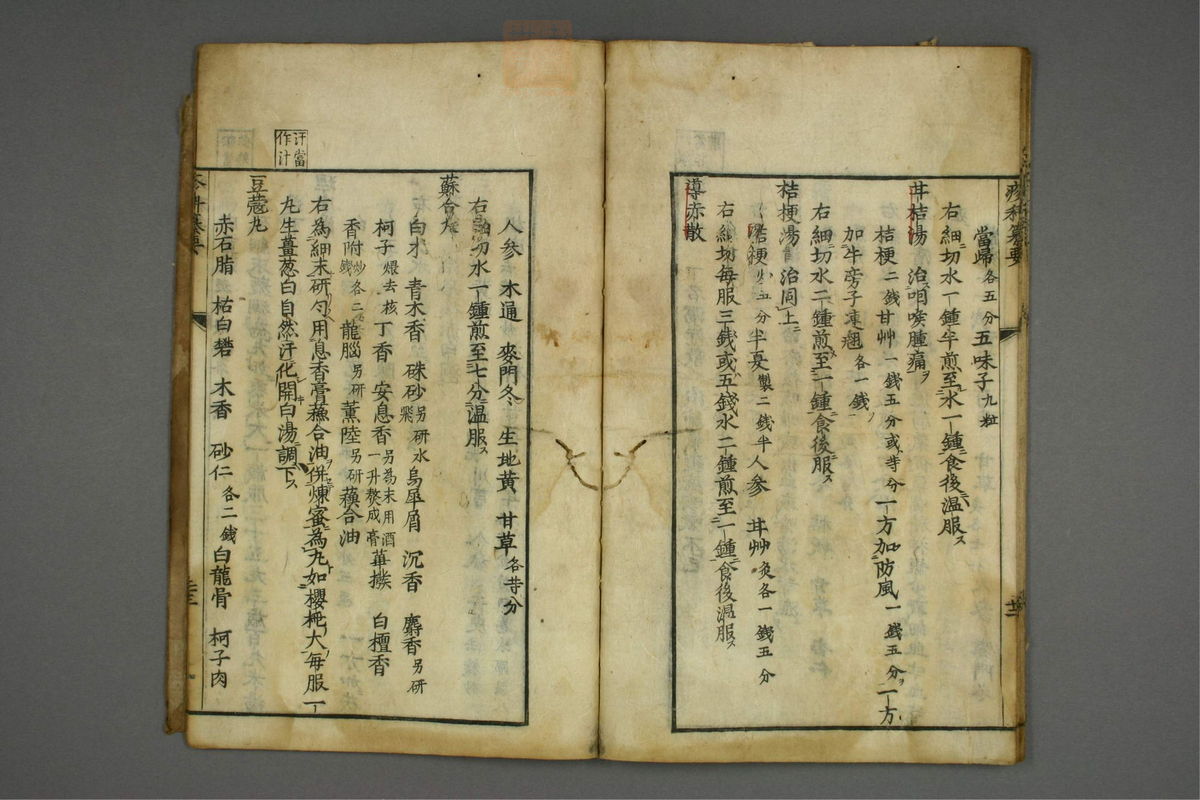 痘科纂要
當歸各五分五味子九粒
右細切水一鍾半煎至水一鍾食後溫服ス
甘桔湯 治咽喉腫痛ヲ
桔梗二錢甘艸一錢五分或等分一方加防風一錢五分一方
加牛旁子連翹各一錢
右細切水二鍾煎至一鍾食後服ス
桔梗湯 治同上
桔梗 五分半夏製二錢半人參 甘艸灸各一錢五分
右細切每服三錢或五錢水二鍾煎至一鍾食後溫服ス
導赤散
人參 木通 麥門冬 生地黃 甘草各等分
右細切水一鍾煎至七分溫服ス
蘇合丸
白朮 青木香 硃砂另研水飛 烏犀屑 沉香 麝香另研
柯子煨去核 丁香 安息香另為末用酒一升熬成膏 蓽撥 白檀香
香附炒各二錢 龍腦另研 薰陸另研 蘓合油
右為細末研勻用息香膏蘓合油併煉蜜為丸如櫻桃大每服一
丸生薑葱白自然汗化開白湯調下ス
汗當作汁
豆蔻丸
赤石脂 枯白礬 木香 砂仁各二錢白龍骨 柯子肉